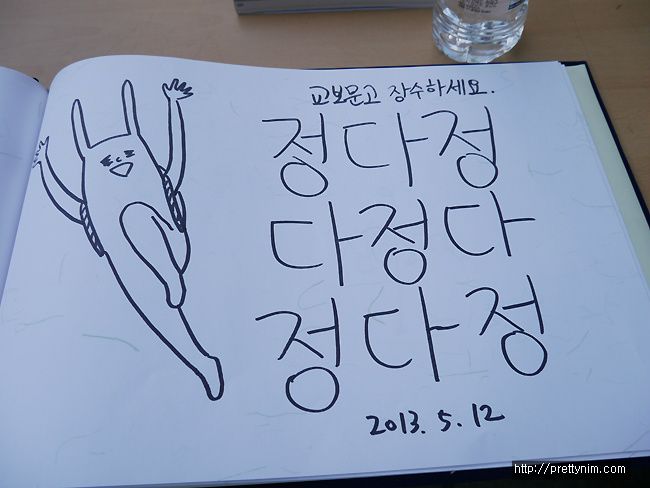 교보문고 장수하세요.
정다정
다정다
정다정
2013. 5. 12
http://prettynim.com